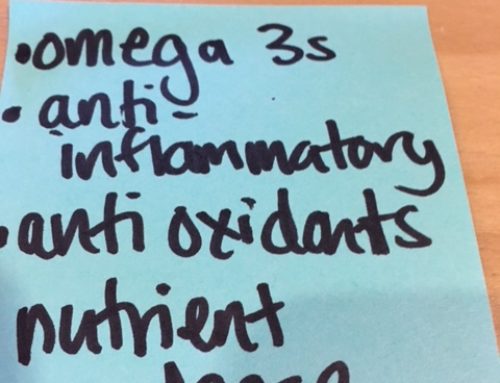 •omega 3s
• anti-
inflammatory
•anti oxidants
nutrient